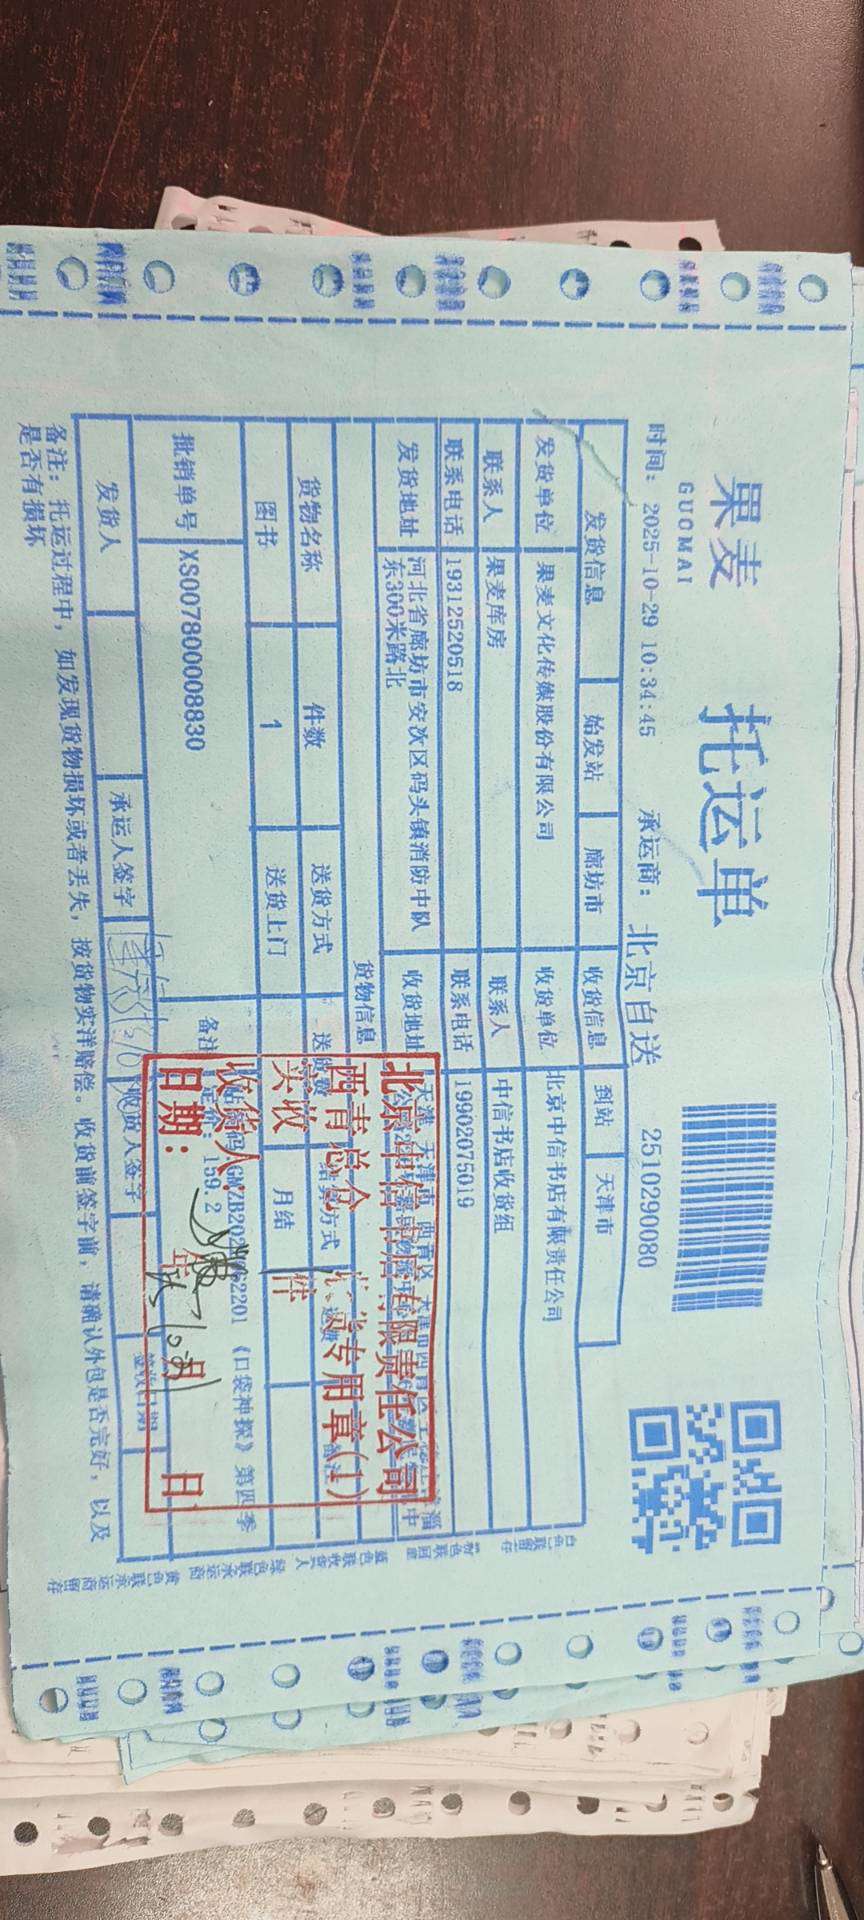 果麦
GUOMAI
托运单
2510290080
时间: 2025-10-29 10:34:45 承运商: 北京自送
发货信息 始发站 廊坊市 收货信息 到站 天津市
发货单位 果麦文化传媒股份有限公司 收货单位 北京中信书店有限责任公司
联系人 果麦库房 联系人 中信书店收货组
联系电话 19312520518 联系电话 19902075019
发货地址 河北省廊坊市安次区码头镇消防中队东300米路北 收货地址 天津 天津市 西青区
货物信息
货物名称 件数 送货方式 结算方式 备注
图书 1 送货上门 月结
批销单号 XS007800008830 备注
《口袋神探》第四季
159.2
发货人 承运人签字 收货人签字 签收日期
备注: 托运过程中, 如发现货物损坏或者丢失, 按货物实洋赔偿。收货前签字前, 请确认外包是否完好, 以及
是否有损坏
北京中信书店有限责任公司
西青总仓 收货专用章(1)
实收 件
收货人:
日期: 年 月 日
白色联留存
粉色联回单
蓝色联收货人
绿色联承运商
黄色联承运商留存